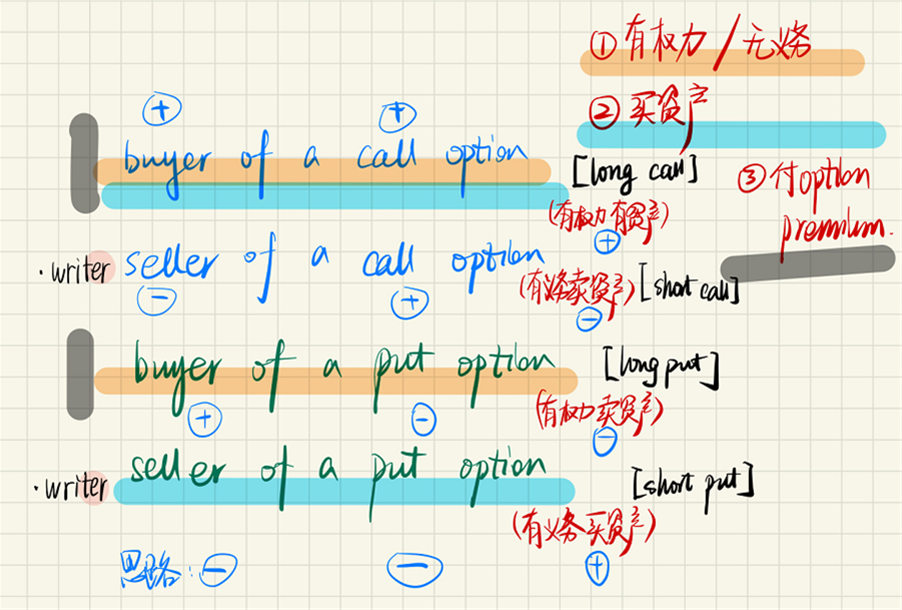 ① 有权力 / 无义务
② 买资产
⊕ ⊕
buyer of a call option [long call]
③ 付option premium.
(有权力有资产)
⊕
·writer seller of a call option (有义务卖资产) [short call]
⊖ ⊕ ⊖
buyer of a put option [long put]
⊕ ⊖ (有权力卖资产)
⊖
·writer seller of a put option [short put]
(有义务买资产)
思路: ⊖ ⊖ ⊕